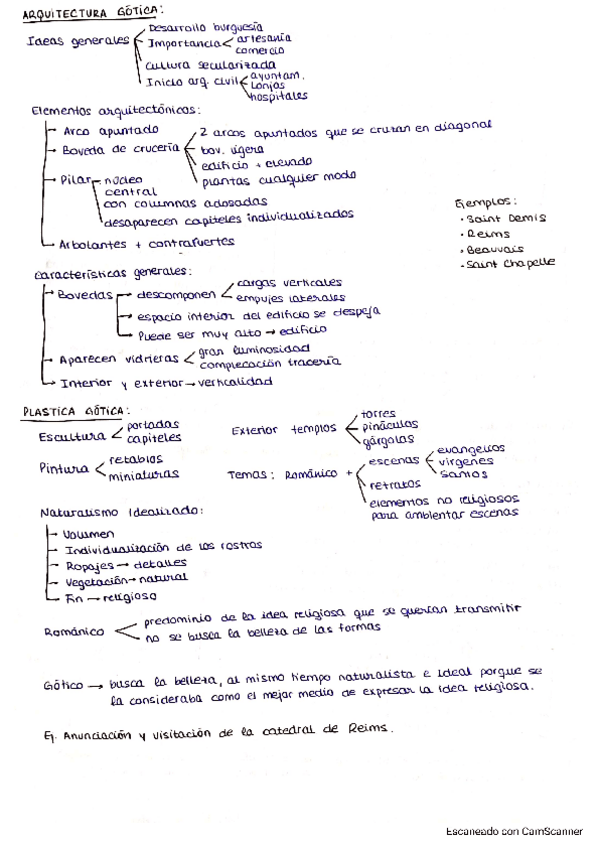 ARQUITECTURA GÓTICA:
Ideas generales
Desarrollo burguesía
Importancia
artesanía
comercio
Cultura secularizada
Inicio arq. civil
ayuntam.
Lonjas
hospitales
Elementos arquitectónicos:
Arco apuntado
Boveda de crucería
2 arcos apuntados que se cruzan en diagonal
bov. ligera
edificio + elevado
plantas cualquier modo
Pilar
núcleo
central
con columnas adosadas
desaparecen capiteles individualizados
Arbotantes + contrafuertes
Ejemplos:
· Saint Denis
· Reims
· Beauvais
· Saint Chapelle
Características generales:
Bovedas
descomponen
cargas verticales
empujes laterales
espacio interior del edificio se despeja
Puede ser muy alto → edificio
Aparecen vidrieras
gran luminosidad
complecación tracería
Interior y exterior → verticalidad
PLASTICA GÓTICA:
Escultura
portadas
capiteles
Exterior templos
torres
pináculos
gárgolas
Pintura
retablos
miniaturas
Temas: Románico +
escenas
evangelios
vírgenes
santos
retratos
elementos no religiosos
para ambientar escenas
Naturalismo Idealizado:
Volumen
Individualización de los rostros
Ropajes → detalles
Vegetación → natural
Fin → religioso
Románico
predominio de la idea religiosa que se querían transmitir
no se busca la belleza de las formas
Gótico → busca la belleza, al mismo tiempo naturalista e ideal porque se
la consideraba como el mejor medio de expresar la idea religiosa.
Ej. Anunciación y visitación de la catedral de Reims.
Escaneado con CamScanner